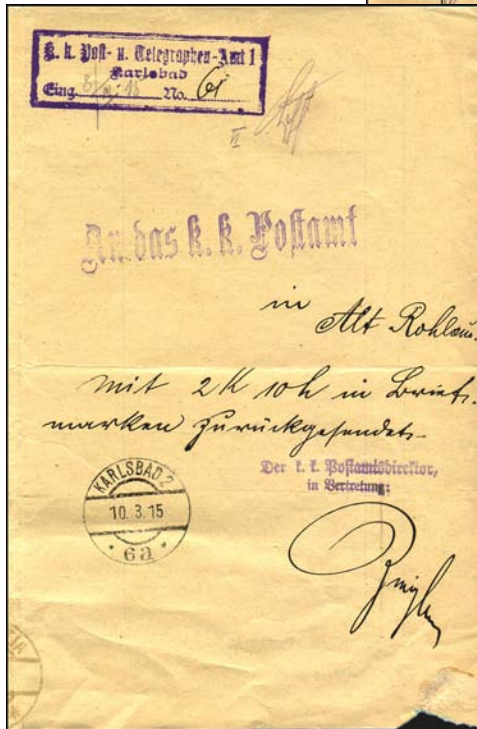 K. k. Post- u. Telegraphen-Amt 1
Karlsbad
Eing. No. 61
II
An das k. k. Postamt
in
Alt Rohlau.
mit 2K 10h in Brief-
marken zurückgesendet.
Der k. k. Postamtsdirektor,
in Vertretung:
KARLSBAD 2
10.3.15
* 6a *